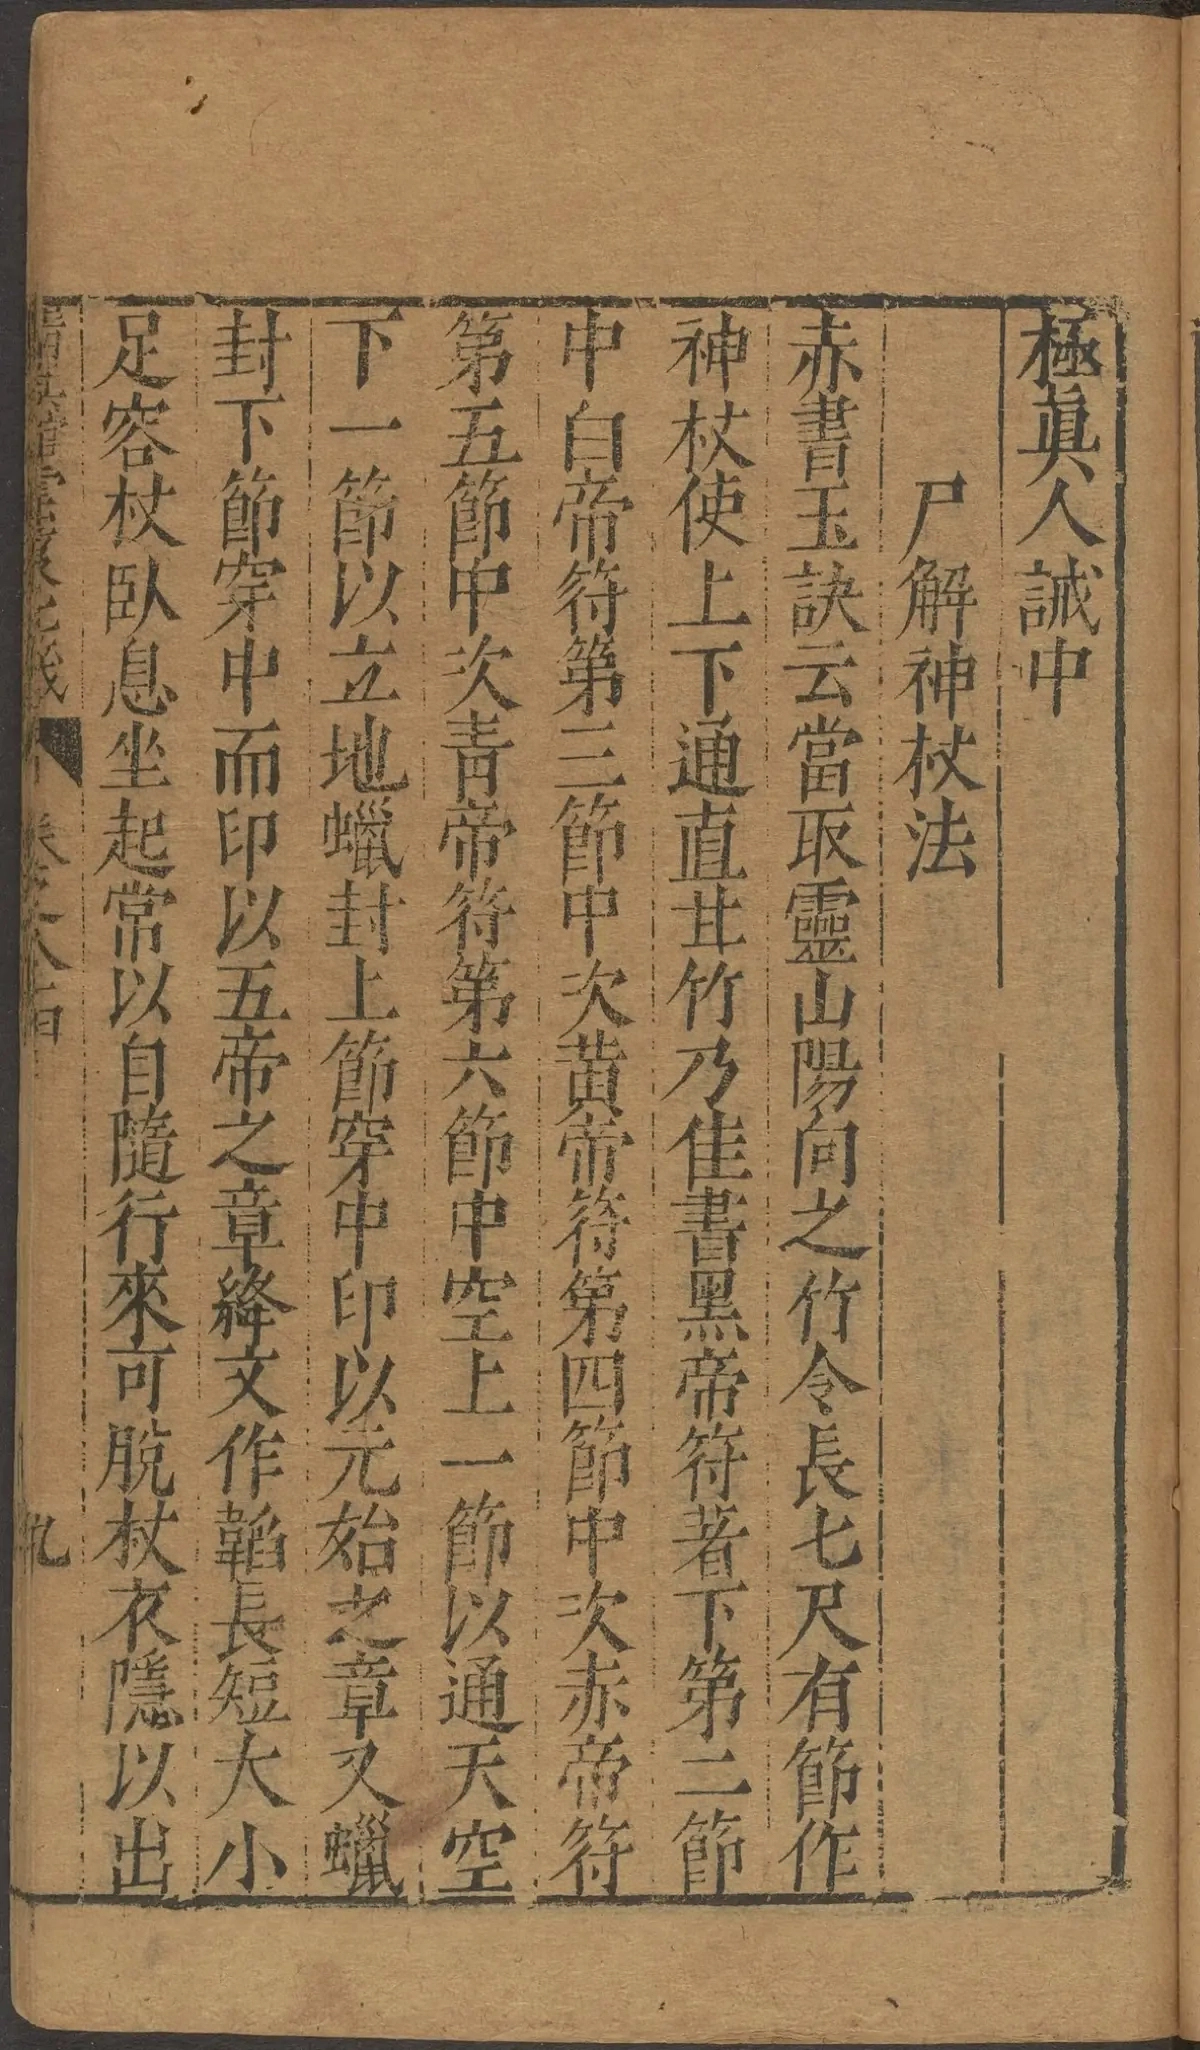 極眞人誡中
尸解神杖法
赤書玉訣云當取靈山陽向之竹令長七尺有節作
神杖使上下通直甘竹乃佳書黑帝符著下第二節
中白帝符第三節中次黄帝符第四節中次赤帝符
第五節中次靑帝符第六節中空上一節以通天空
下一節以立地蠟封上節穿中印以元始之章又蠟
封下節穿中而印以五帝之章絳文作韜長短大小
足容杖臥息坐起常以自隨行來可脫杖衣隱以出